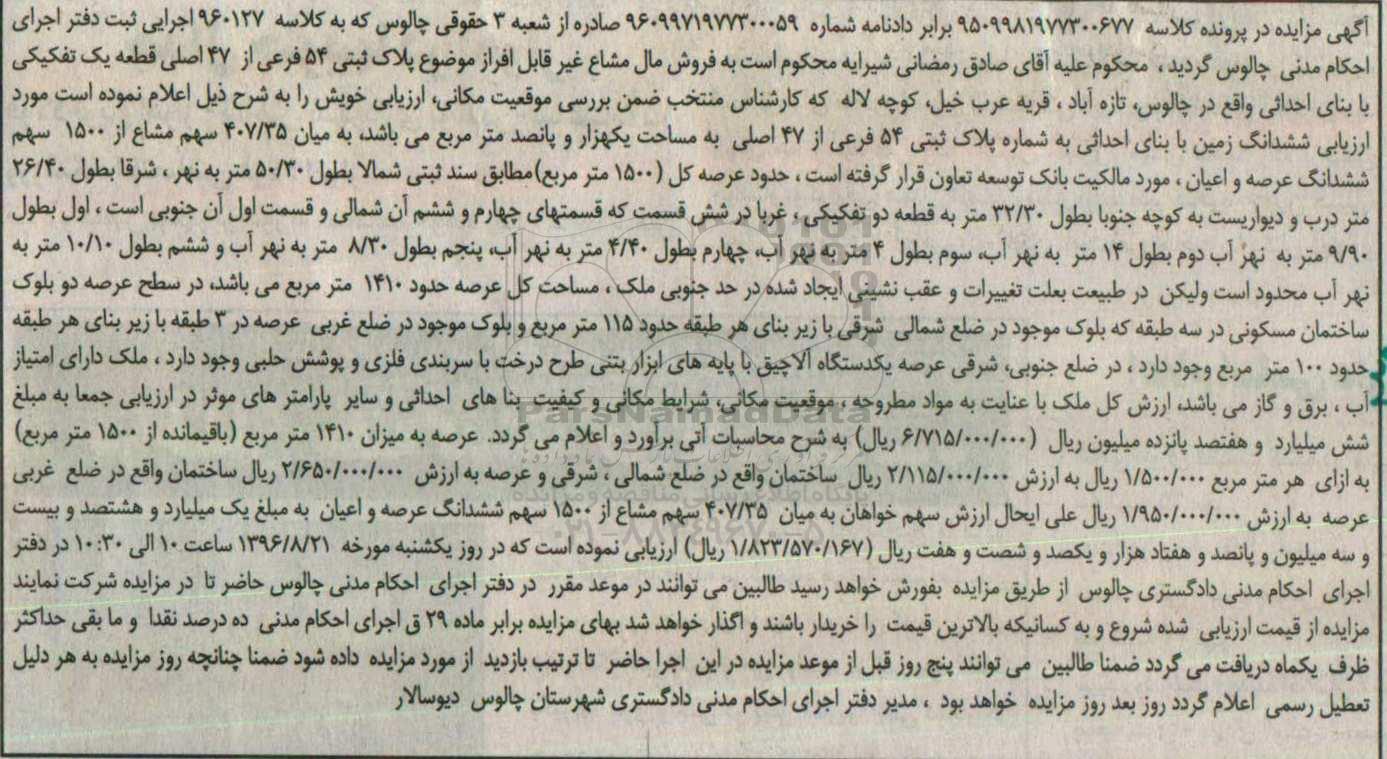 آگهی مزایده در پرونده کلاسه ۹۵۰۹۹۸۱۹۷۷۳۰۰۶۷۷ برابر دادنامه شماره ۹۶۰۹۹۷۱۹۷۷۳۰۰۰۵۹ صادره از شعبه ۳ حقوقی چالوس که به کلاسه ۹۶۰۱۲۷ اجرایی ثبت دفتر اجرای
احکام مدنی چالوس گردید ، محکوم علیه آقای صادق رمضانی شیرایه محکوم است به فروش مال مشاع غیر قابل افراز موضوع پلاک ثبتی ۵۴ فرعی از ۴۷ اصلی قطعه یک تفکیکی
با بنای احداثی واقع در چالوس، تازه آباد ، قریه عرب خیل، کوچه لاله که کارشناس منتخب ضمن بررسی موقعیت مکانی، ارزیابی خویش را به شرح ذیل اعلام نموده است مورد
ارزیابی ششدانگ زمین با بنای احداثی به شماره پلاک ثبتی ۵۴ فرعی از ۴۷ اصلی به مساحت یکهزار و پانصد متر مربع می باشد، به میان ۴۰۷/۳۵ سهم مشاع از ۱۵۰۰ سهم
ششدانگ عرصه و اعیان ، مورد مالکیت بانک توسعه تعاون قرار گرفته است ، حدود عرصه کل (۱۵۰۰ متر مربع) مطابق سند ثبتی شمالا بطول ۵۰/۳۰ متر به نهر ، شرقا بطول ۲۶/۴۰
متر درب و دیواریست به کوچه جنوبا بطول ۳۲/۳۰ متر به قطعه دو تفکیکی ، غربا در شش قسمت که قسمتهای چهارم و ششم آن شمالی و قسمت اول آن جنوبی است ، اول بطول
۹/۹۰ متر به نهر آب دوم بطول ۱۴ متر به نهر آب، سوم بطول ۴ متر به نهر آب، چهارم بطول ۴/۴۰ متر به نهر آب، پنجم بطول ۸/۳۰ متر به نهر آب و ششم بطول ۱۰/۱۰ متر به
نهر آب محدود است ولیکن در طبیعت بعلت تغییرات و عقب نشینی ایجاد شده در حد جنوبی ملک ، مساحت کل عرصه حدود ۱۴۱۰ متر مربع می باشد، در سطح عرصه دو بلوک
ساختمان مسکونی در سه طبقه که بلوک موجود در ضلع شمالی شرقی با زیر بنای هر طبقه حدود ۱۱۵ متر مربع و بلوک موجود در ضلع غربی عرصه در ۳ طبقه با زیر بنای هر طبقه
حدود ۱۰۰ متر مربع وجود دارد ، در ضلع جنوبی، شرقی عرصه یکدستگاه آلاچیق با پایه های ابزار بتنی طرح درخت با سربندی فلزی و پوشش حلبی وجود دارد ، ملک دارای امتیاز
آب ، برق و گاز می باشد، ارزش کل ملک با عنایت به مواد مطروحه ، موقعیت مکانی، شرایط مکانی و کیفیت بنا های احداثی و سایر پارامتر های موثر در ارزیابی جمعا به مبلغ
شش میلیارد و هفتصد پانزده میلیون ریال (۶/۷۱۵/۰۰۰/۰۰۰ ریال) به شرح محاسبات آتی برآورد و اعلام می گردد. عرصه به میزان ۱۴۱۰ متر مربع (باقیمانده از ۱۵۰۰ متر مربع)
به ازای هر متر مربع ۱/۵۰۰/۰۰۰ ریال به ارزش ۲/۱۱۵/۰۰۰/۰۰۰ ریال ساختمان واقع در ضلع شمالی ، شرقی و عرصه به ارزش ۲/۶۵۰/۰۰۰/۰۰۰ ریال ساختمان واقع در ضلع غربی
عرصه به ارزش ۱/۹۵۰/۰۰۰/۰۰۰ ریال علی ایحال ارزش سهم خواهان به میان ۴۰۷/۳۵ سهم مشاع از ۱۵۰۰ سهم ششدانگ عرصه و اعیان به مبلغ یک میلیارد و هشتصد و بیست
و سه میلیون و پانصد و هفتاد هزار و یکصد و شصت و هفت ریال (۱/۸۲۳/۵۷۰/۱۶۷ ریال) ارزیابی نموده است که در روز یکشنبه مورخه ۱۳۹۶/۸/۲۱ ساعت ۱۰ الی ۱۰:۳۰ در دفتر
اجرای احکام مدنی دادگستری چالوس از طریق مزایده بفورش خواهد رسید طالبین می توانند در موعد مقرر در دفتر اجرای احکام مدنی چالوس حاضر تا در مزایده شرکت نمایند
مزایده از قیمت ارزیابی شده شروع و به کسانیکه بالاترین قیمت را خریدار باشند و اگذار خواهد شد بهای مزایده برابر ماده ۲۹ ق اجرای احکام مدنی ده درصد نقدا و ما بقی حداکثر
ظرف یکماه دریافت می گردد ضمنا طالبین می توانند پنج روز قبل از موعد مزایده در این اجرا حاضر تا ترتیب بازدید از مورد مزایده داده شود ضمنا چنانچه روز مزایده به هر دلیل
تعطیل رسمی اعلام گردد روز بعد روز مزایده خواهد بود ، مدیر دفتر اجرای احکام مدنی دادگستری شهرستان چالوس دیوسالار
ParsNamadData